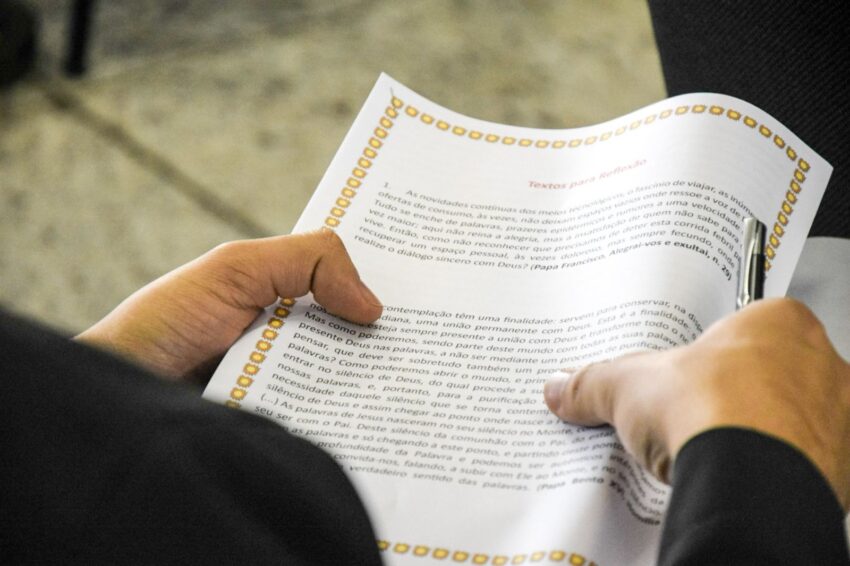 Textos para Reflexão
1. As novidades contínuas dos meios tecnológicos, o fascínio de viajar, as inúm
ofertas de consumo, às vezes, não deixam espaços vazios onde ressoe a voz de
Tudo se enche de palavras, prazeres epidérmicos e rumores a uma velocidade
vez maior; aqui não reina a alegria, mas a insatisfação de quem não sabe para
vive. Então, como não reconhecer que precisamos de deter esta corrida febril
recuperar um espaço pessoal, às vezes doloroso, mas sempre fecundo, onde
realize o diálogo sincero com Deus? (Papa Francisco, Alegrai-vos e exultai, n. 29)
contemplação têm uma finalidade: servem para conservar, na
diana, uma união permanente com Deus. Esta é a finalidade:
esteja sempre presente a união com Deus e transforme todo o
Mas como poderemos, sendo parte deste mundo com todas as suas palav
presente nas palavras, a não ser mediante um processo de purific
pensar, que deve ser sobretudo também um proc
palavras? Como poderemos abrir o mundo, e prim
entrar no silêncio de Deus, do qual procede a su
nossas palavras, e, portanto, para a purificação
necessidade daquele silêncio que se torna contemp
silêncio de Deus e assim chegar ao ponto onde nasce a
(...) As palavras de Jesus nasceram no seu silêncio no Monte,
seu ser com o Pai. Deste silêncio da comunhão com o Pai,
as palavras e só chegando a este ponto, e partindo deste ponto
profundidade da Palavra e podemos ser autênticos
convida-nos, falando, a subir com Ele ao Monte, e no
verdadeiro sentido das palavras. (Papa Bento